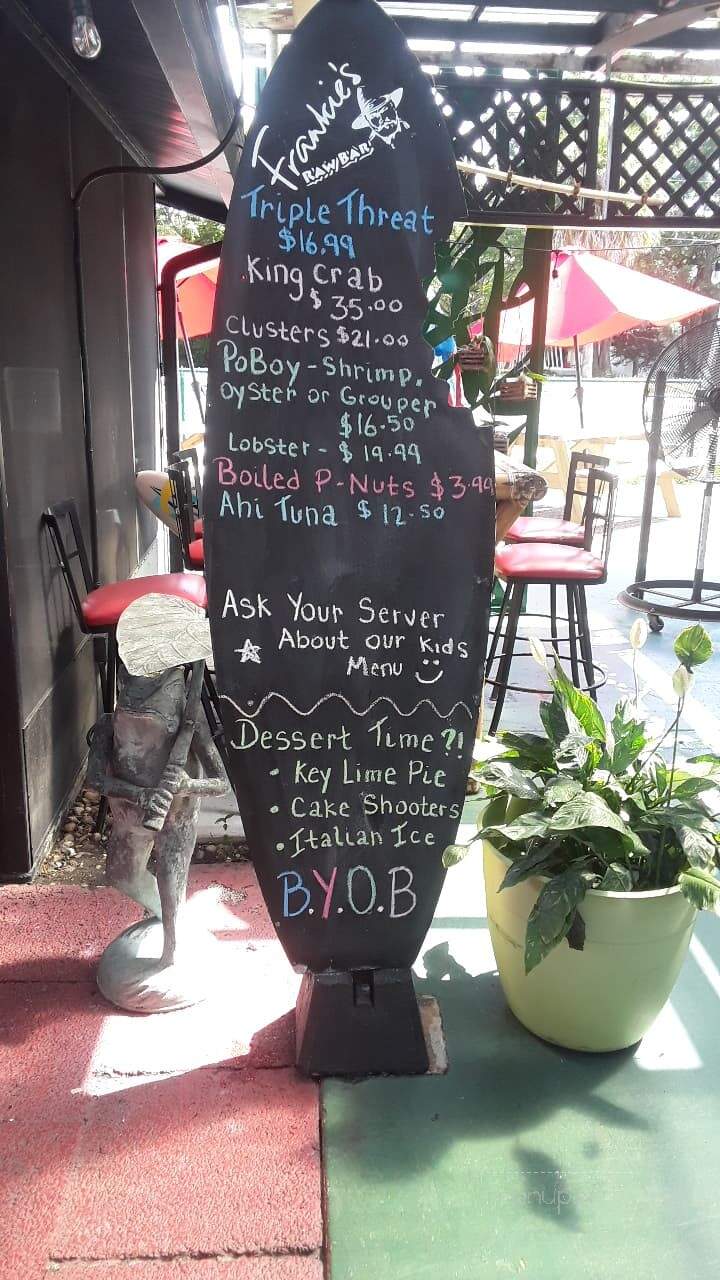 Frankie's
RAW BAR
Triple Threat
$16.99
King Crab
$35.00
Clusters $21.00
PoBoy - Shrimp,
Oyster or Grouper
$16.50
Lobster - $19.99
Boiled P-Nuts $3.99
Ahi Tuna $12.50
Ask Your Server
About our Kids
Menu
Dessert Time?!
• Key Lime Pie
• Cake Shooters
• Italian Ice
B.Y.O.B